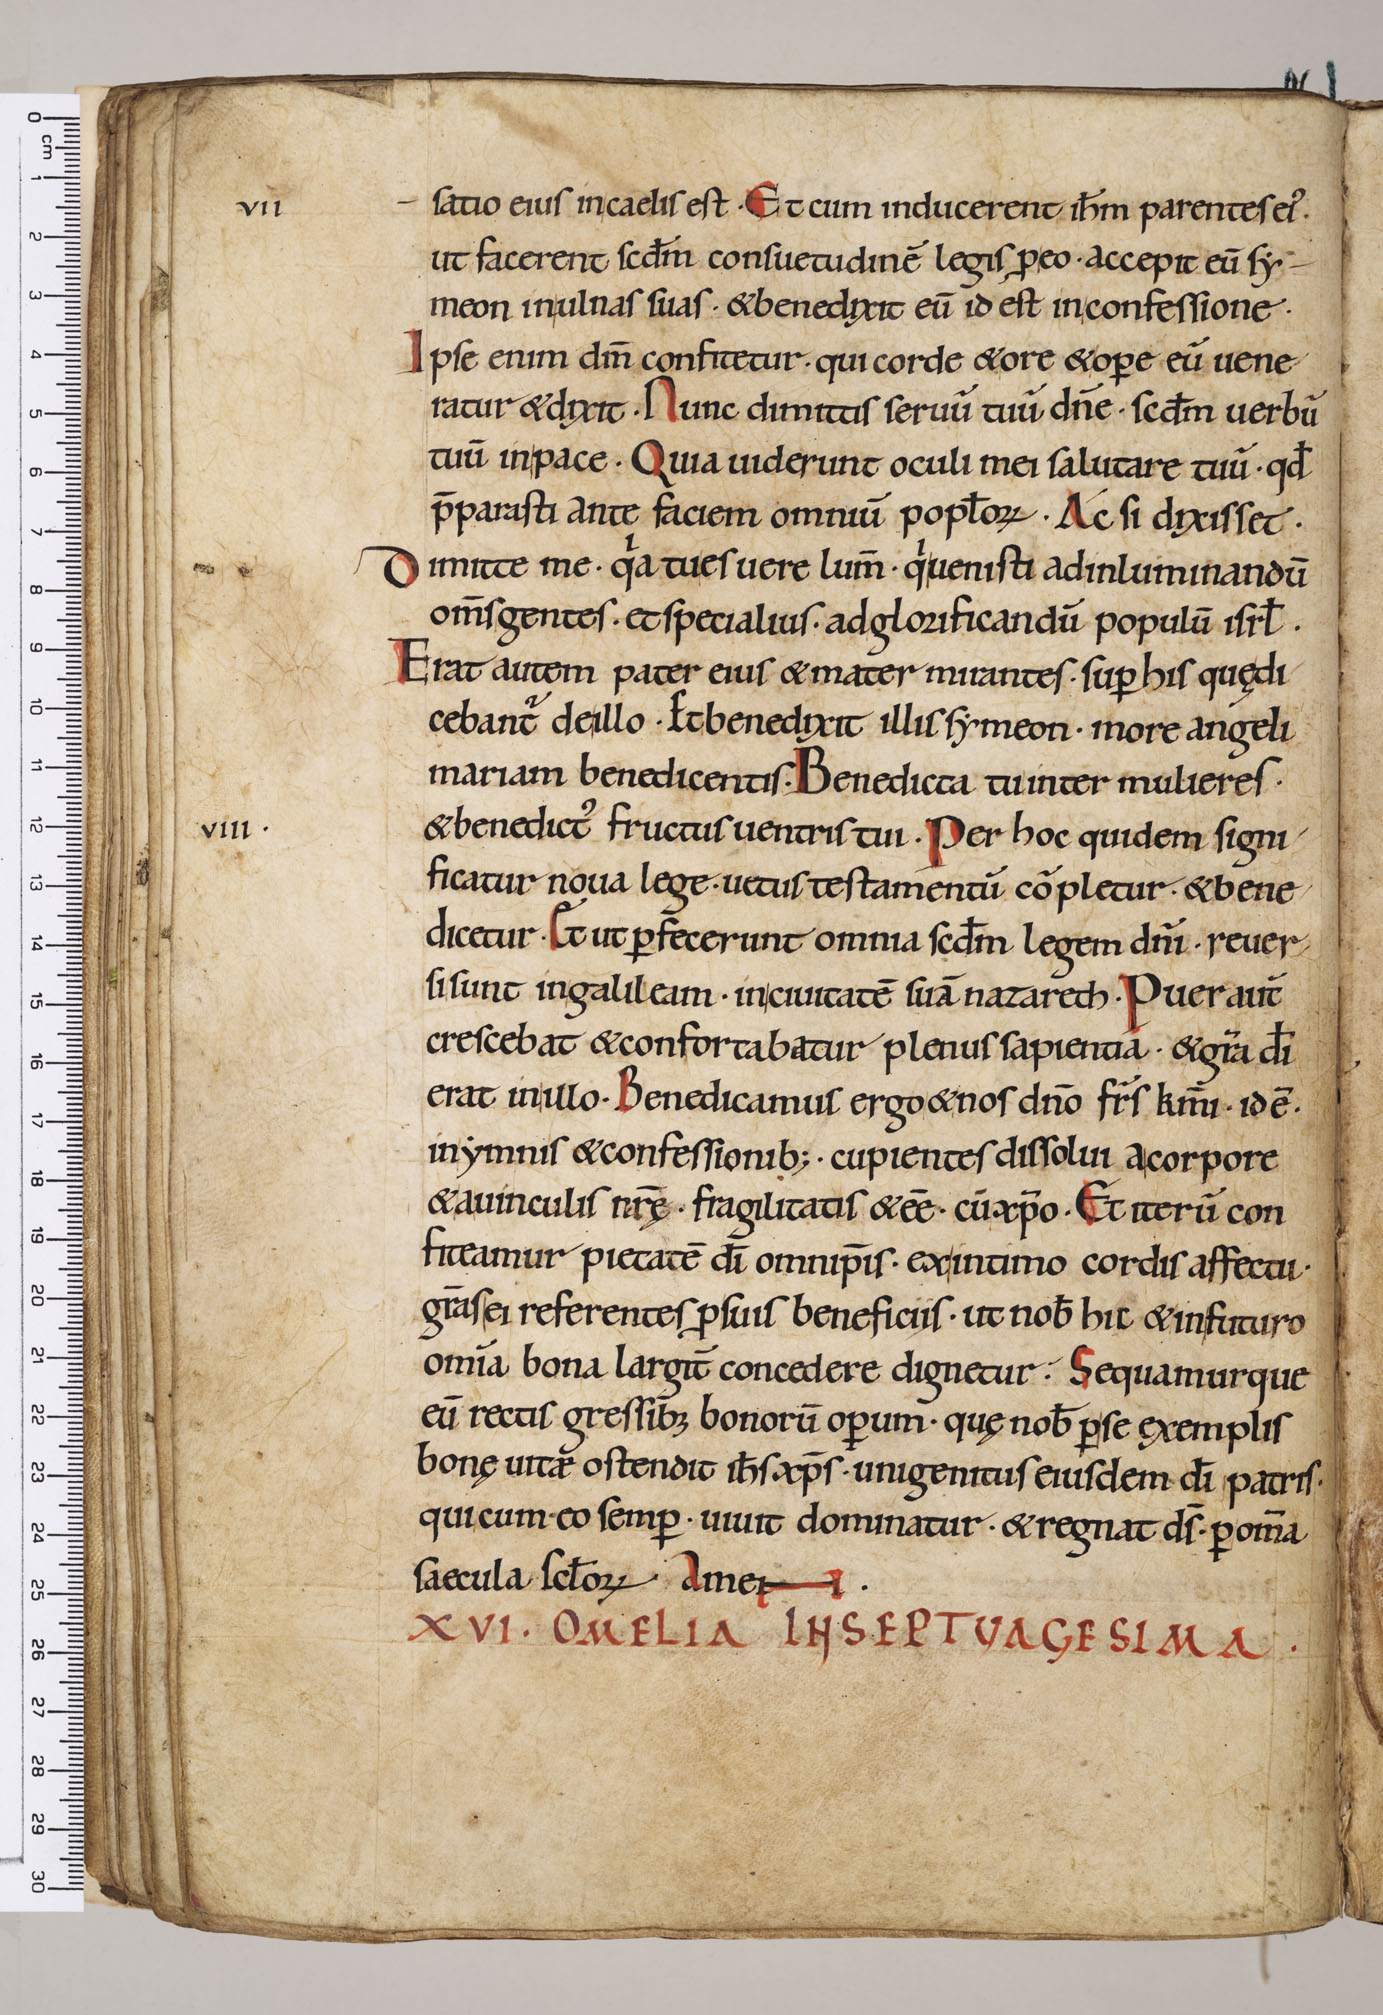 vii
satio eius incaelis est · Et cum inducerent ih̅m parentes ei᾿ ·
ut facerent scd̅m consuetudinē legis p̲eo · accepit eū sẏ-
meon inulnas suas · &benedixit eū id est inconfessione ·
Ipse enim dn̄m confitetur · qui corde &ore &op̲e eū uene
ratur &dixit · Nunc dimittis seruū tuū dn̄e · scd̅m uerbū
tuū inpace · Quia uiderunt oculi mei salutare tuū · qd̅
p̄parasti ante faciem omniū popl̅oꝝ · Ac si dixisset ·
Dimitte me · qͥa tues uere lum̄ · qͥ uenisti adinluminandū
om̄s gentes · et specialius · adglorificandū populū isrl̅ ·
Erat autem pater eius &mater mirantes · sup̲ his quędi
cebant᷑ deillo · Et benedixit illis sẏmeon · more angeli
mariam benedicentis · Benedicta tuinter mulieres ·
viii ·
&benedict᾿ fructus uentris tui · Per hoc quidem signi
ficatur noua lege · uetus testamentū cōpletur · &bene
dicetur · Et ut p̲fecerunt omnia scd̅m legem dn̄i · reuer
sisunt ingalileam · inciuitatē suā nazareth · Puer aut̄
crescebat &confortabatur plenus sapientia · &gr̄a dī
erat inillo · Benedicamus ergo &nos dn̄o fr̄s km̄i · id ē ·
inẏmnis &confessionib; · cupientes dissolui acorpore
&auinculis nr̄ę · fragilitatis &eē · cūxp̄o · Et iterū con
fiteamur pietatē dī omnip̄is · exintimo cordis affectu ·
gr̄as ei referentes p̲suis beneficiis · ut nob̅ hic &infuturo
omīa bona largit̄ concedere dignetur · Sequamurque
eū rectis gressib̅ꝫ bonorū op̲um · quę nob̅ p̲se exemplis
bonę uitæ ostendit ih̅s xp̄s · unigenitus eiusdem dī patris ·
qui cum eo semp̲ · uiuit dominatur · &regnat ds̄ · p̲ om̄a
saecula scl̅oꝝ · Amen ·
XVI · OMELIA IN SEPTUAGESIMA ·